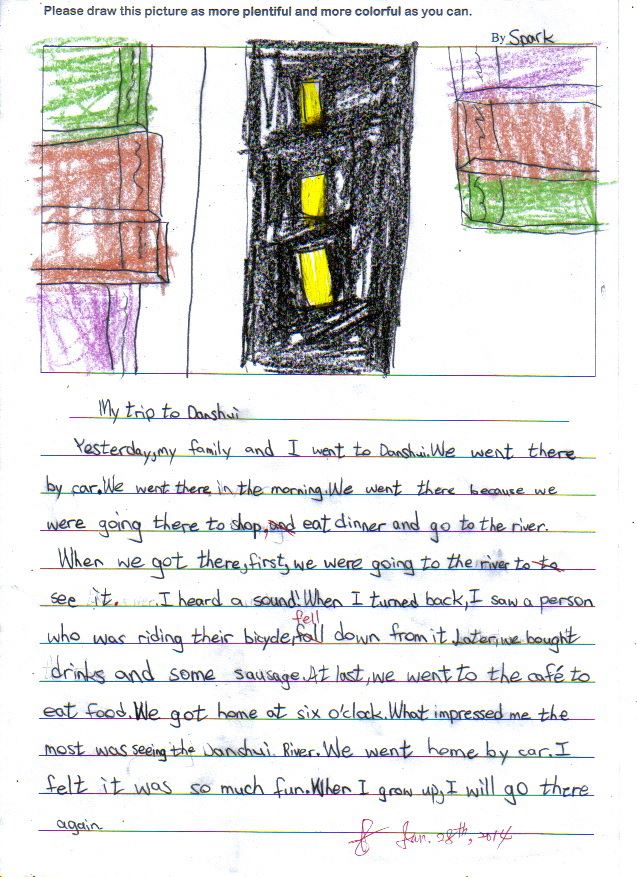 Please draw this picture as more plentiful and more colorful as you can.
By Spark
My trip to Danshui
Yesterday, my family and I went to Danshui. We went there
by car. We went there in the morning. We went there because we
were going there to shop, and eat dinner and go to the river.
When we got there, first, we were going to the river to to
see it. I heard a sound! When I turned back, I saw a person
fell
who was riding their bicycle, fall down from it. Later, we bought
drinks and some sausage. At last, we went to the café to
eat food. We got home at six o'clock. What impressed me the
most was seeing the Danshui River. We went home by car. I
felt it was so much fun. When I grow up, I will go there
again
Jan. 28th, 2014